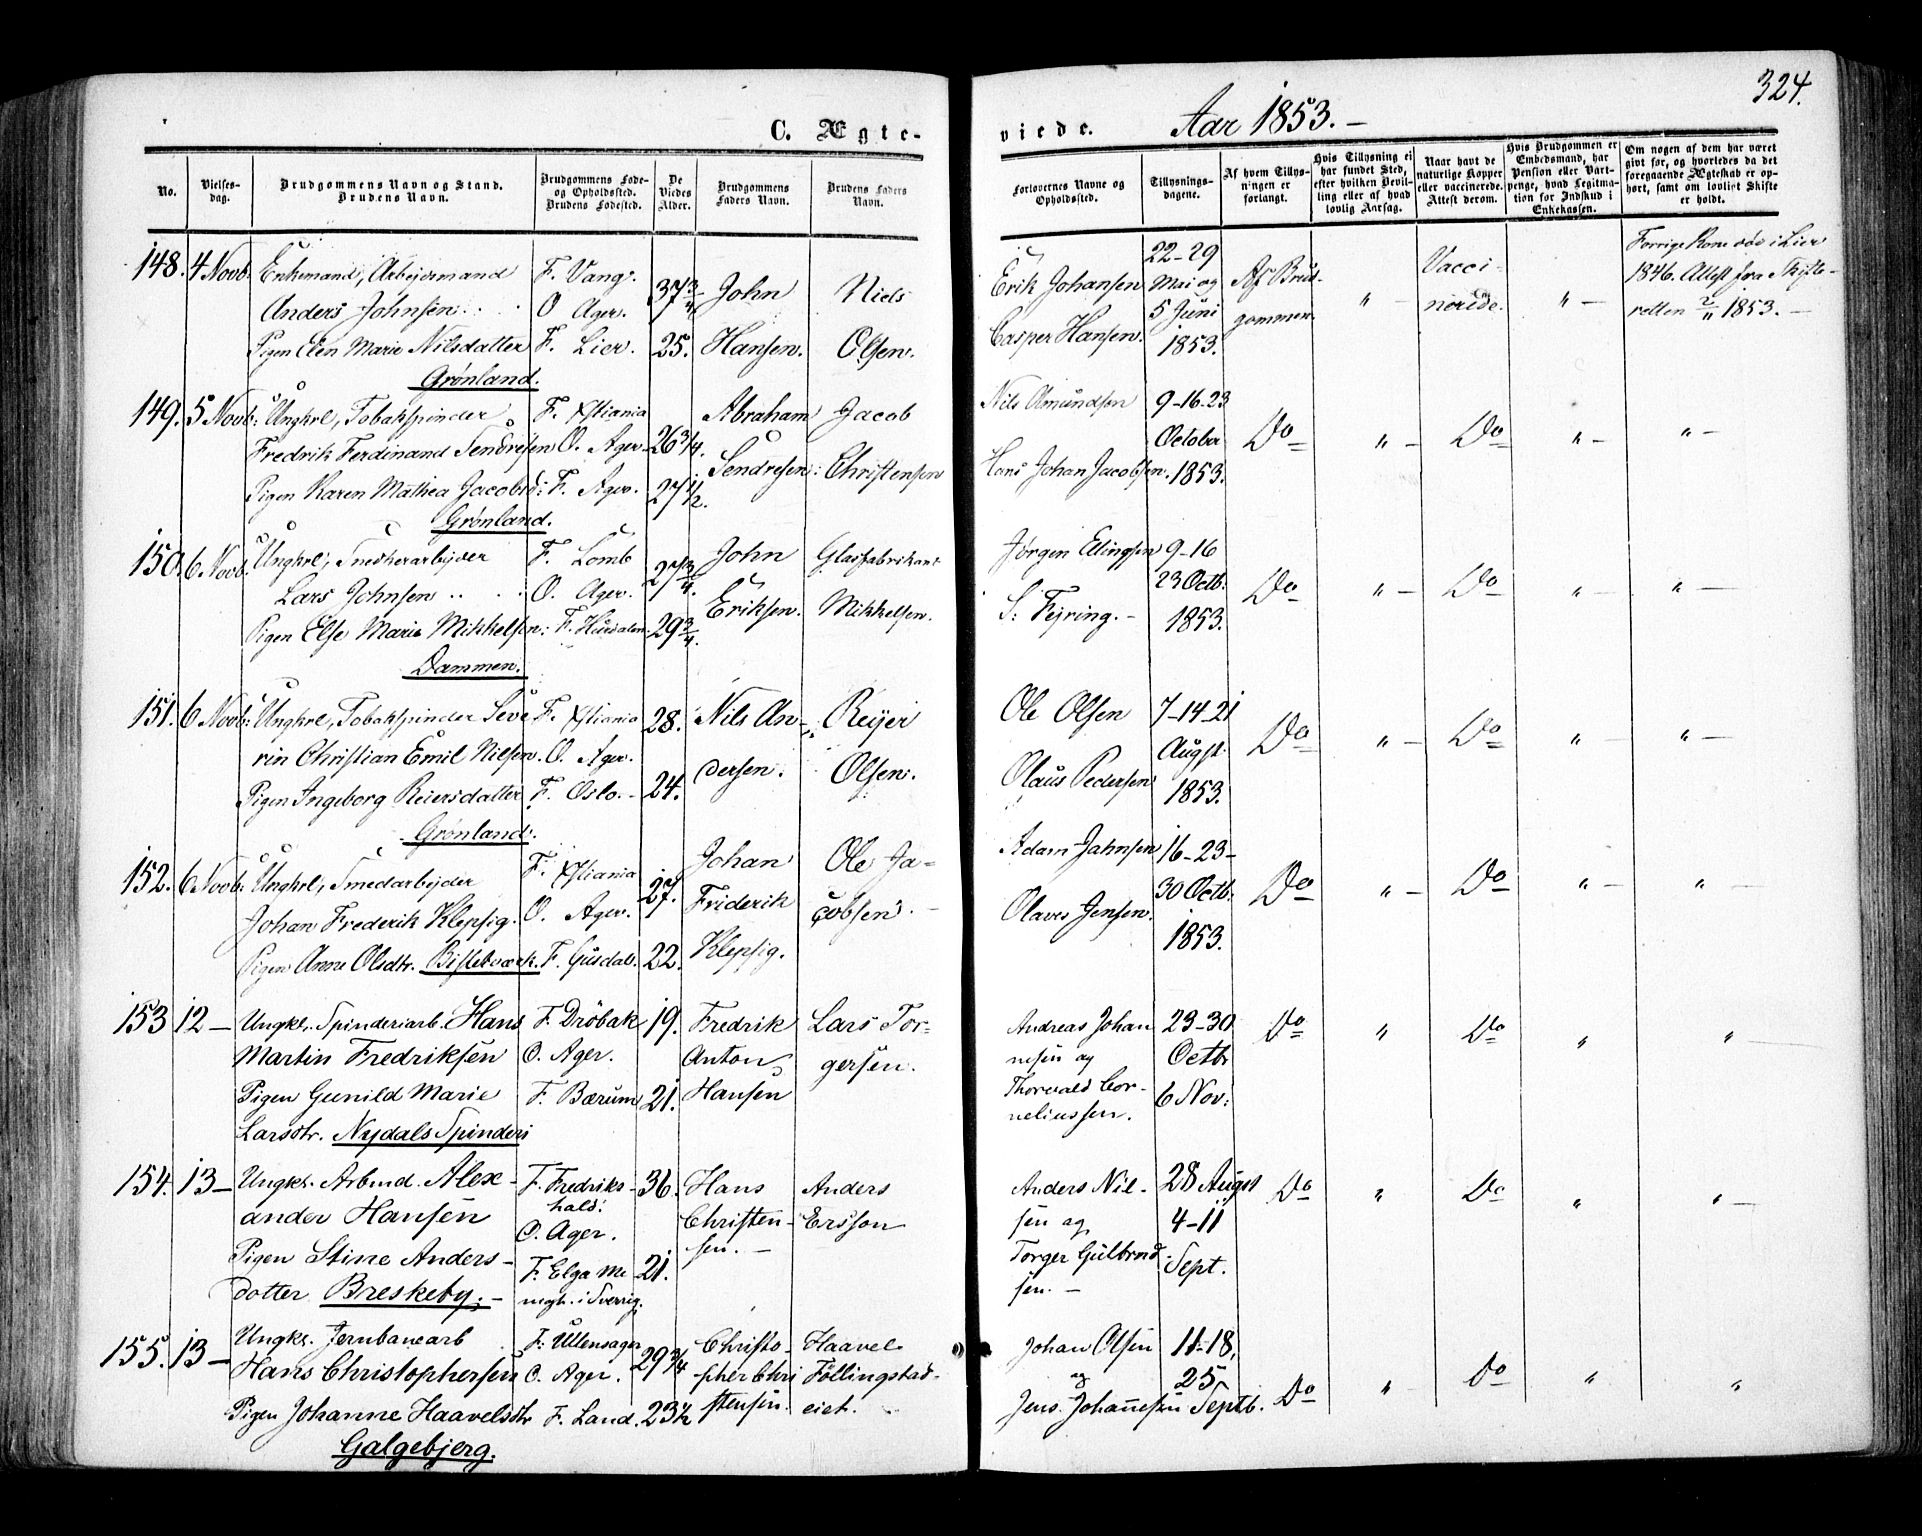 324.
C. Ægte-
viede. Aar 1853. –
No.
Vielses-
dag.
Brudgommens Navn og Stand.
Brudens Navn.
Brudgommens Føde-
og Opholdssted.
Brudens Fødested.
De
Viedes
Alder.
Brudgommens
Faders Navn.
Brudens Faders
Navn.
Forlovernes Navne og
Opholdssted.
Tillysnings-
dagene.
Af hvem Tillys-
ningen er
forlangt.
Hvis Tillysning ei
har fundet Sted,
efter hvilken Bevil-
ling eller af hvad
lovlig Aarsag.
Naar havt de
naturlige Kopper
eller vaccinerede.
Attest derom.
Hvis Brudgommen er
Embedsmand, har
Pension eller Vart-
penge, hvad Legitima-
tion for Indskud i
Enkekassen.
Om nogen af dem har været
givt før, og hvorledes da det
foregaaende Ægteskab er op-
hørt, samt om lovligt Skifte
er holdt.
148. 4 Novb.
Enkemand, Arbejdsmand
Anders Johnsen
Pigen Elen Marie Nilsdatter
Grønland.
F. Vang.
O Ager.
F. Lier.
37 3/4
25.
John
Hansen.
Niels
Olsen.
Erik Johansen
Casper Hansen.
22–29
Mai og
5 Juni
1853.
Af Brud-
gommen.
" –
Vacci-
nerede.
" –
Forrige Kone død i Lier
1846. Attest fra Skifte-
retten 2/11 1853. –
149. 5 Novb:
Ungkrl, Tobakspinder
Fredrik Ferdinand Sendresen
Pigen Karen Mathea Jacobsd:
Grønland.
F. Xstiania
O. Ager.
F. Ager.
26 3/4.
27 1/2.
Abraham
Sendresen:
Jacob
Christensen
Nils Amundsen
Hans Johan Jacobsen.
9–16–23
October
1853.
Do
" –
Do
" –
" –
150. 6 Novb.
Ungkrl, Smedkerarbejder
Lars Johnsen
Pigen Else Marie Mikkelsen:
Dammen.
F. Lomb
O. Ager.
F. Hurdalen.
27 3/4.
29 3/4.
John
Eriksen.
Glasfabrikant
Mikkelsen.
Jørgen Ellingsen
S: Fejring. –
9–16
23 Octb.
1853.
Do
" –
Do
" –
" –
151. 6 Novb:
Ungkrl, Tobakspinder Seve
rin Christian Emil Nilsen.
Pigen Ingeborg Reiersdatter
Grønland.
F. Xstiania
O. Ager.
F. Oslo. –
28.
24.
Nils An-
dersen.
Reijer
Olsen.
Ole Olsen
Olaus Pedersen
7–14–21
Augst.
1853.
Do
" –
Do
" –
" –
152. 6 Novb:
Ungkrl, Smedarbejder
Johan Frederik Klepsig.
Pigen Anne Olsdtr. Bisletværk.
F. Xstiania
O. Ager.
F. Gusdal.
27.
22.
Johan
Friderik
Klepsig.
Ole Ja-
cobsen. –
Adam Jahnsen
Olaves Jensen.
16–23–
30 Octb.
1853.
Do
" –
Do
" –
" –
153 12 –
Ungkr. Spinderiarb. Hans
Martin Fredriksen
Pigen Gunild Marie
Larsdtr. Nydals Spinderi
F. Dröbak
O. Ager.
F. Bærum
19.
21.
Fredrik
Anton
Hansen
Lars Tor-
gersen.
Andreas Johan
nesen og
Thorvald Cor-
neliussen.
23–30
Octbr
6 Nov:
Do
"
Do
"
"
154. 13 –
Ungkr. Arbmd. Alex-
ander Hansen
Pigen Stine Anders-
dotter Breskeby. –
F. Fredriks-
hald.
O. Ager.
F. Elga Me
negh. i Sverrig.
36.
21.
Hans
Christen-
sen. –
Anders
Ersson
Anders Nil-
sen og
Torger Gulbrnd-
sen. –
28 Augst
4–11
Sept.
Do
"
Do
"
"
155. 13 –
Ungkr. Jernbanearb
Hans Christophersen
Pigen Johanne Haavelsdtr
Galgebjerg.
F. Ullensager
O. Ager.
F. Land.
29 3/4
23 1/2
Christo-
pher Chri
stensen.
Haavel
Föllingstad-
eiet.
Johan Olsen
og
Jens Johannesen
11–18,
25
Septb.
Do
"
Do
"
"